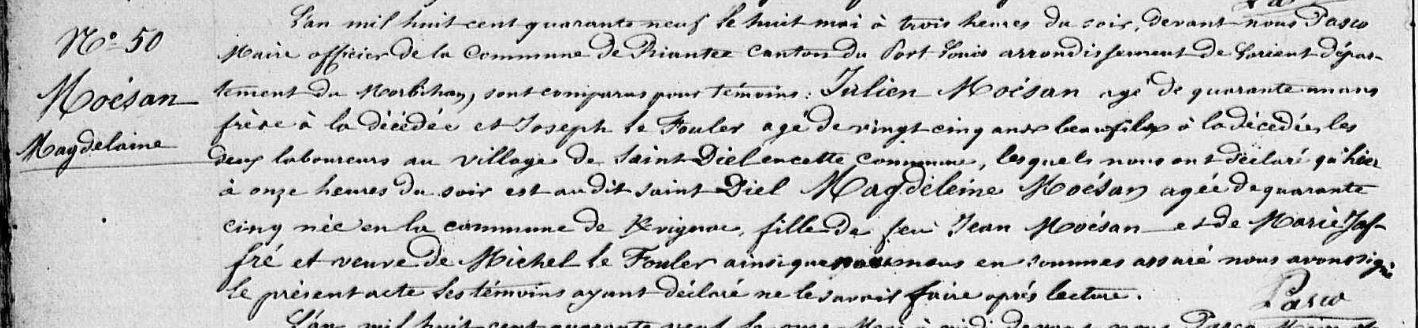 N° 50
Moésan
Magdelaine
L'an mil huit cent quarante neuf le huit mai à trois heures du soir, devant nous Pasco
Maire officier de la Commune de Riantec canton du Port Louis arrondissement de Lorient dépar-
tement du Morbihan, sont comparus pour témoins : Julien Moésan agé de quarante un ans
frère à la décédée et Joseph le Fouler agé de vingt cinq ans beaufils à la décédée, les
deux laboureurs au village de Saint Diel en cette commune, lesquels nous ont déclaré qu'hier
à onze heures du soir est au dit Saint Diel Magdeleine Moésan agée de quarante
cinq née en la commune de Kvignac, fille de feu Jean Moésan et de Marie Jaf-
fré et veuve de Michel le Fouler ainsi que nous nous en sommes assuré nous avons signé
le présent acte les témoins ayant déclaré ne le savoir faire après lecture.
Pasco
L'an mil huit cent quarante neuf le onze Mai à midi devant nous Pasco Maire